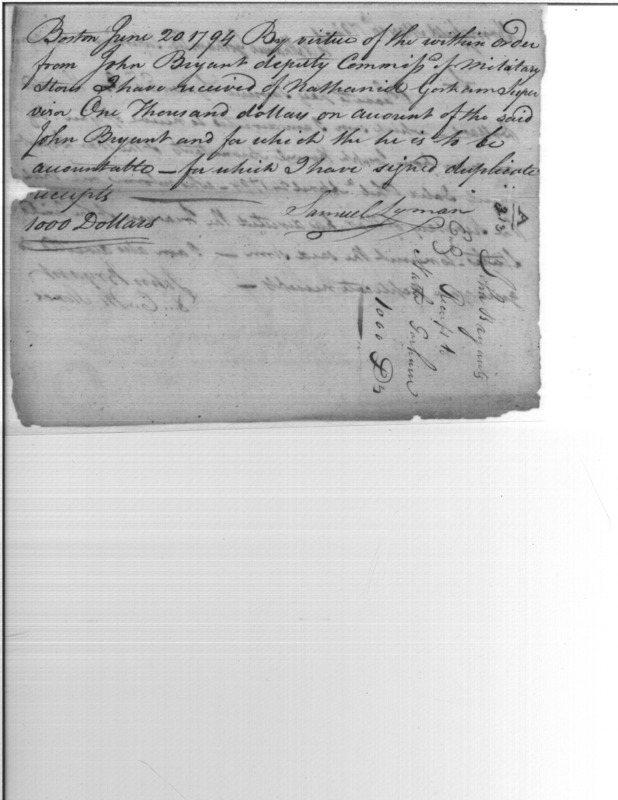 Boston June 20 1794 By virtue of the within order
from John Bryant deputy Commissy of Military
Stores I have received of Nathaniel Gorham Super
visor One Thousand dollars on account of the said
John Bryant and for which the he is to be
accountable — for which I have signed duplicate
receipts
1000 Dollars
Samuel Lyman
A
213
John Bryants
Receipt
Nathl Gorham
1000 Ds